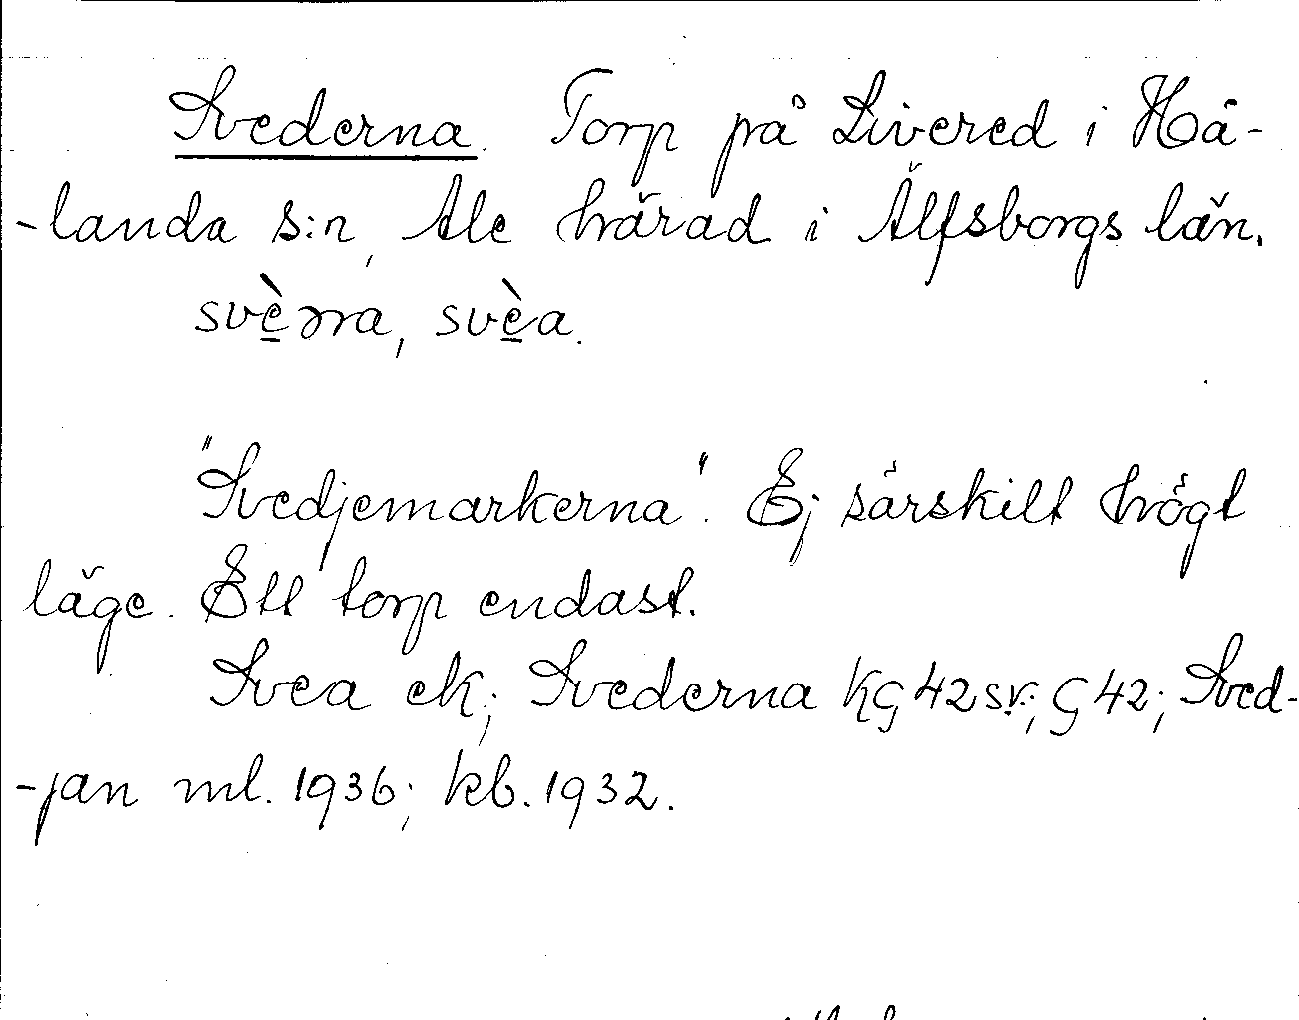 Svederna. Torp på Livered i Hå-
-landa s:n, Ale härad i Älfsborgs län.
svèrra, svèa.
"Svedjemarkerna". Ej särskilt högt
läge. Ett torp endast.
Svea ek; Svederna KG 42 sv.; G 42; Sved-
-jan ml. 1936; kb. 1932.